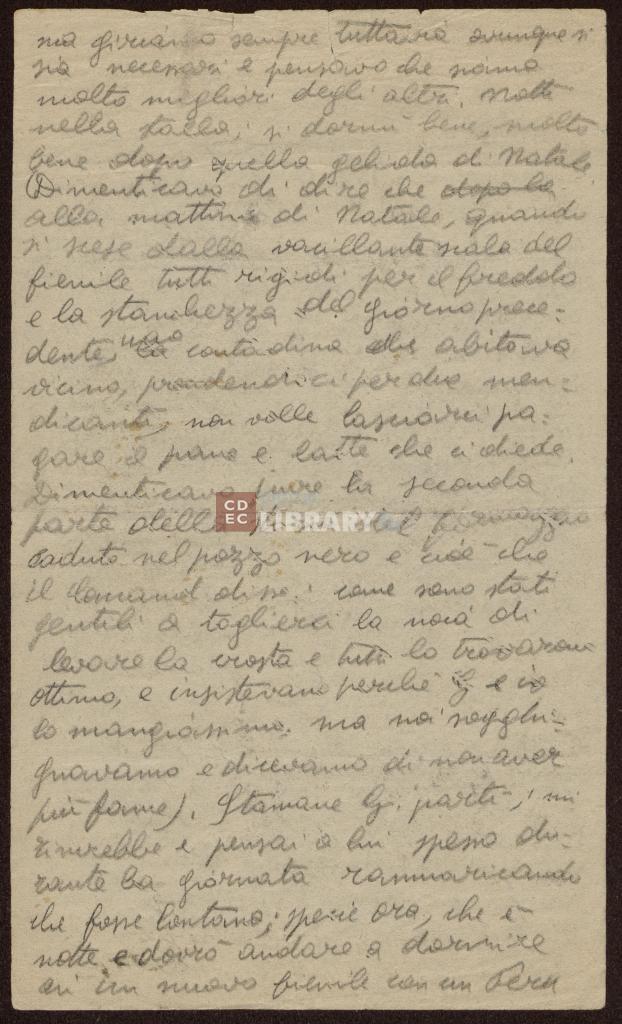 ma giriamo sempre tuttavia ovunque si
sia necessari e pensavo che siamo
molto migliori degli altri. Notte
nella stalla; si dormì bene, molto
bene dopo quella gelida di Natale
(Dimenticavo di dire che dopo la
alla mattina di Natale, quando
si scese dalla vacillante scala del
fienile tutti rigidi per il freddo
e la stanchezza del giorno prece-
dente, una contadina che abitava
vicino, prendendoci per due men-
dicanti, non volle lasciarci pa-
gare il pane e latte che ci diede.
Dimenticavo pure la seconda
parte della formaggio
caduto nel pozzo nero e cioè che
il Comand. disse: come sono stati
gentili a toglierci la noia di
levare la crosta e tutti lo trovarono
ottimo, e insistevano perché G. e io
lo mangiassimo. ma noi sogghi-
gnavamo e dicevamo di non aver
più fame). Stamane G. partì; mi
rincrebbe e pensai a lui spesso du-
rante la giornata rammaricando
che fosse lontano; specie ora, che è
notte e dovrò andare a dormire
in un nuovo fienile con un
CDEC LIBRARY